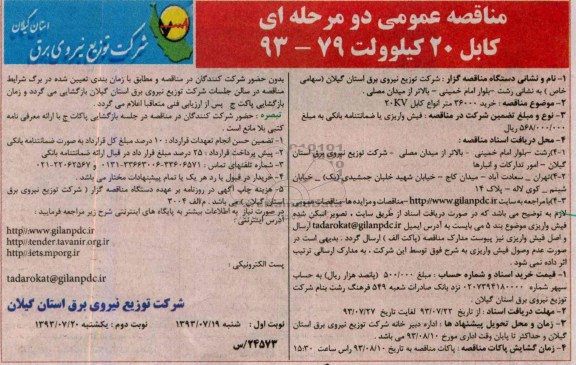 مناقصه عمومی دو مرحله ای
کابل ۲۰ کیلوولت ۷۹ – ۹۳
استان گیلان
شرکت توزیع نیروی برق
۱- نام و نشانی دستگاه مناقصه گزار : شرکت توزیع نیروی برق استان گیلان (سهامی
خاص ) به نشانی رشت -بلوار امام خمینی – بالاتر از میدان مصلی .
۲- موضوع مناقصه : خرید ۳۶۰۰۰ متر انواع کابل ۲۰KV
۳- نوع و مبلغ تضمین شرکت در مناقصه : فیش واریزی یا ضمانتنامه بانکی به مبلغ
۵۶۸/۰۰۰/۰۰۰ریال
۴- محل دریافت اسناد مناقصه :
۴-۱)رشت -بلوار امام خمینی – بالاتر از میدان مصلی - شرکت توزیع نیروی برق استان
گیلان – امور تدارکات و انبارها
۴-۲)تهران _ سعادت آباد – میدان کاج – خیابان شهید خلیلی جمشیدی(پیک) _ خیابان
شبنم _ کوی لاله – پلاک ۱۴
۴-۳)با مراجعه به سایت http//www.gilanpdc.ir-مناقصات و مزایده ها-مناقصات عمومی
لازم به توضیح می باشد که در صورت دریافت اسناد از طریق سایت ، تصویر اسکن شده
فیش واریزی موضوع بند ۵ می بایست به آدرس ایمیل tadarokat@gilanpdc.ir ارسال
و اصل فیش واریزی نیز پیوست مدارک مناقصه (پاکت الف ) ارسال گردد . بدیهی است در
صورت عدم وصول فیش واریزی به شرح فوق توسط این شرکت ، به مدارک ارسالی ترتیب
اثر داده نمی شود .
۱- قیمت خرید اسناد و شماره حساب : مبلغ ۵۰۰/۰۰۰ (پانصد هزار ریال) به حساب
سپهر شماره ۰۲۰۷۳۹۴۱۸۰۰۰۰ نزد بانک صادرات شعبه ۵۴۹ فرهنگ رشت بنام شرکت
توزیع نیروی برق استان گیلان .
۲- مهلت دریافت اسناد : از تاریخ ۹۳/۰۷/۲۲ لغایت تاریخ ۹۳/۰۷/۲۷
۳- زمان و محل تحویل پیشنهاد ها : اداره دبیر خانه شرکت توزیع نیروی برق استان
گیلان و حداکثر تا پایان وقت اداری مورخ ۹۳/۰۸/۱۰ می باشد .
۴- زمان گشایش پاکات مناقصه : پاکات مناقصه به تاریخ ۹۳/۰۸/۱۰ راس ساعت ۱۵:۳۰
بدون حضور شرکت کنندگان در مناقصه و مطابق با زمان بندی تعیین شده در برگ شرایط
مناقصه در سالن جلسات شرکت توزیع نیروی برق استان گیلان بازگشایی می گردد و زمان
بازگشایی پاکت ج پس از ارزیابی فنی متعاقبا اعلام می گردد .
تبصره : حضور شرکت کنندگان در مناقصه در جلسه بازگشایی پاکت ج با ارائه معرفی نامه
کتبی بلا مانع است .
۱- تضمین حسن انجام تعهدات قرارداد : ۱۰ درصد مبلغ کل قرارداد به صورت ضمانتنامه بانکی
۲- پیش پرداخت قرارداد : ۲۵ درصد مبلغ قرار داد در قبال ارائه ضمانتنامه بانکی
۳- شماره تلفنهای تماس : ۳۳۴۰۶۵۷۱-۰۱۳-۳۳۶۶۳۰۰۶ ۲۲۰۶۲۵۶۷-۰۲۱
۴- خریدار در قبول یا رد هر یک یا تمام پیشنهادات مختار می باشد .
۵- هزینه چاپ آگهی در روزنامه بر عهده دستگاه مناقصه گزار ( شرکت توزیع نیروی برق
استان گیلان ) می باشد . م الف ۳۰۰۴
در صورت نیاز به اطلاعات بیشتر به پایگاه های اینترنتی شرح زیر مراجعه فرمایید :
آدرس اینترنتی :
http\\:www.gilanpdc.ir
http\\:tender.tavanir.org.ir
http\\:iets.mporg.ir
پست الکترونیکی :
tadarokat@gilanpdc.ir
شرکت توزیع نیروی برق استان گیلان
نوبت اول : شنبه ۱۳۹۳/۰۷/۱۹ نوبت دوم : یکشنبه ۱۳۹۳/۰۷/۲۰
۲۴۵۷۳/س